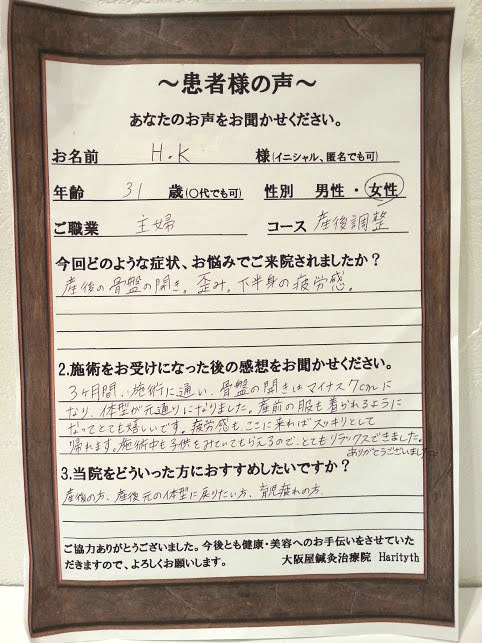 ～患者様の声～
あなたのお声をお聞かせください。
お名前 H.K 様(イニシャル、匿名でも可)
年齢 31 歳(〇代でも可) 性別 男性・女性
ご職業 主婦 コース 産後調整
今回どのような症状、お悩みでご来院されましたか?
産後の骨盤の開き。歪み。下半身の疲労感。
2.施術をお受けになった後の感想をお聞かせください。
3ヶ月間、施術に通い、骨盤の開きはマイナス7cmに
なり、体型が元通りになりました。産前の服も着られるように
なってとても嬉しいです。疲労感も、ここに来ればスッキリとして
帰れます。施術中も子供をみていてもらえるので、とてもリラックスできました。
ありがとうございました
3.当院をどういった方におすすめしたいですか?
産後の方、産後元の体型に戻りたい方、育児疲れの方
ご協力ありがとうございました。今後とも健康・美容へのお手伝いをさせていた
だきますので、よろしくお願いします。 大阪屋鍼灸治療院 Harityth